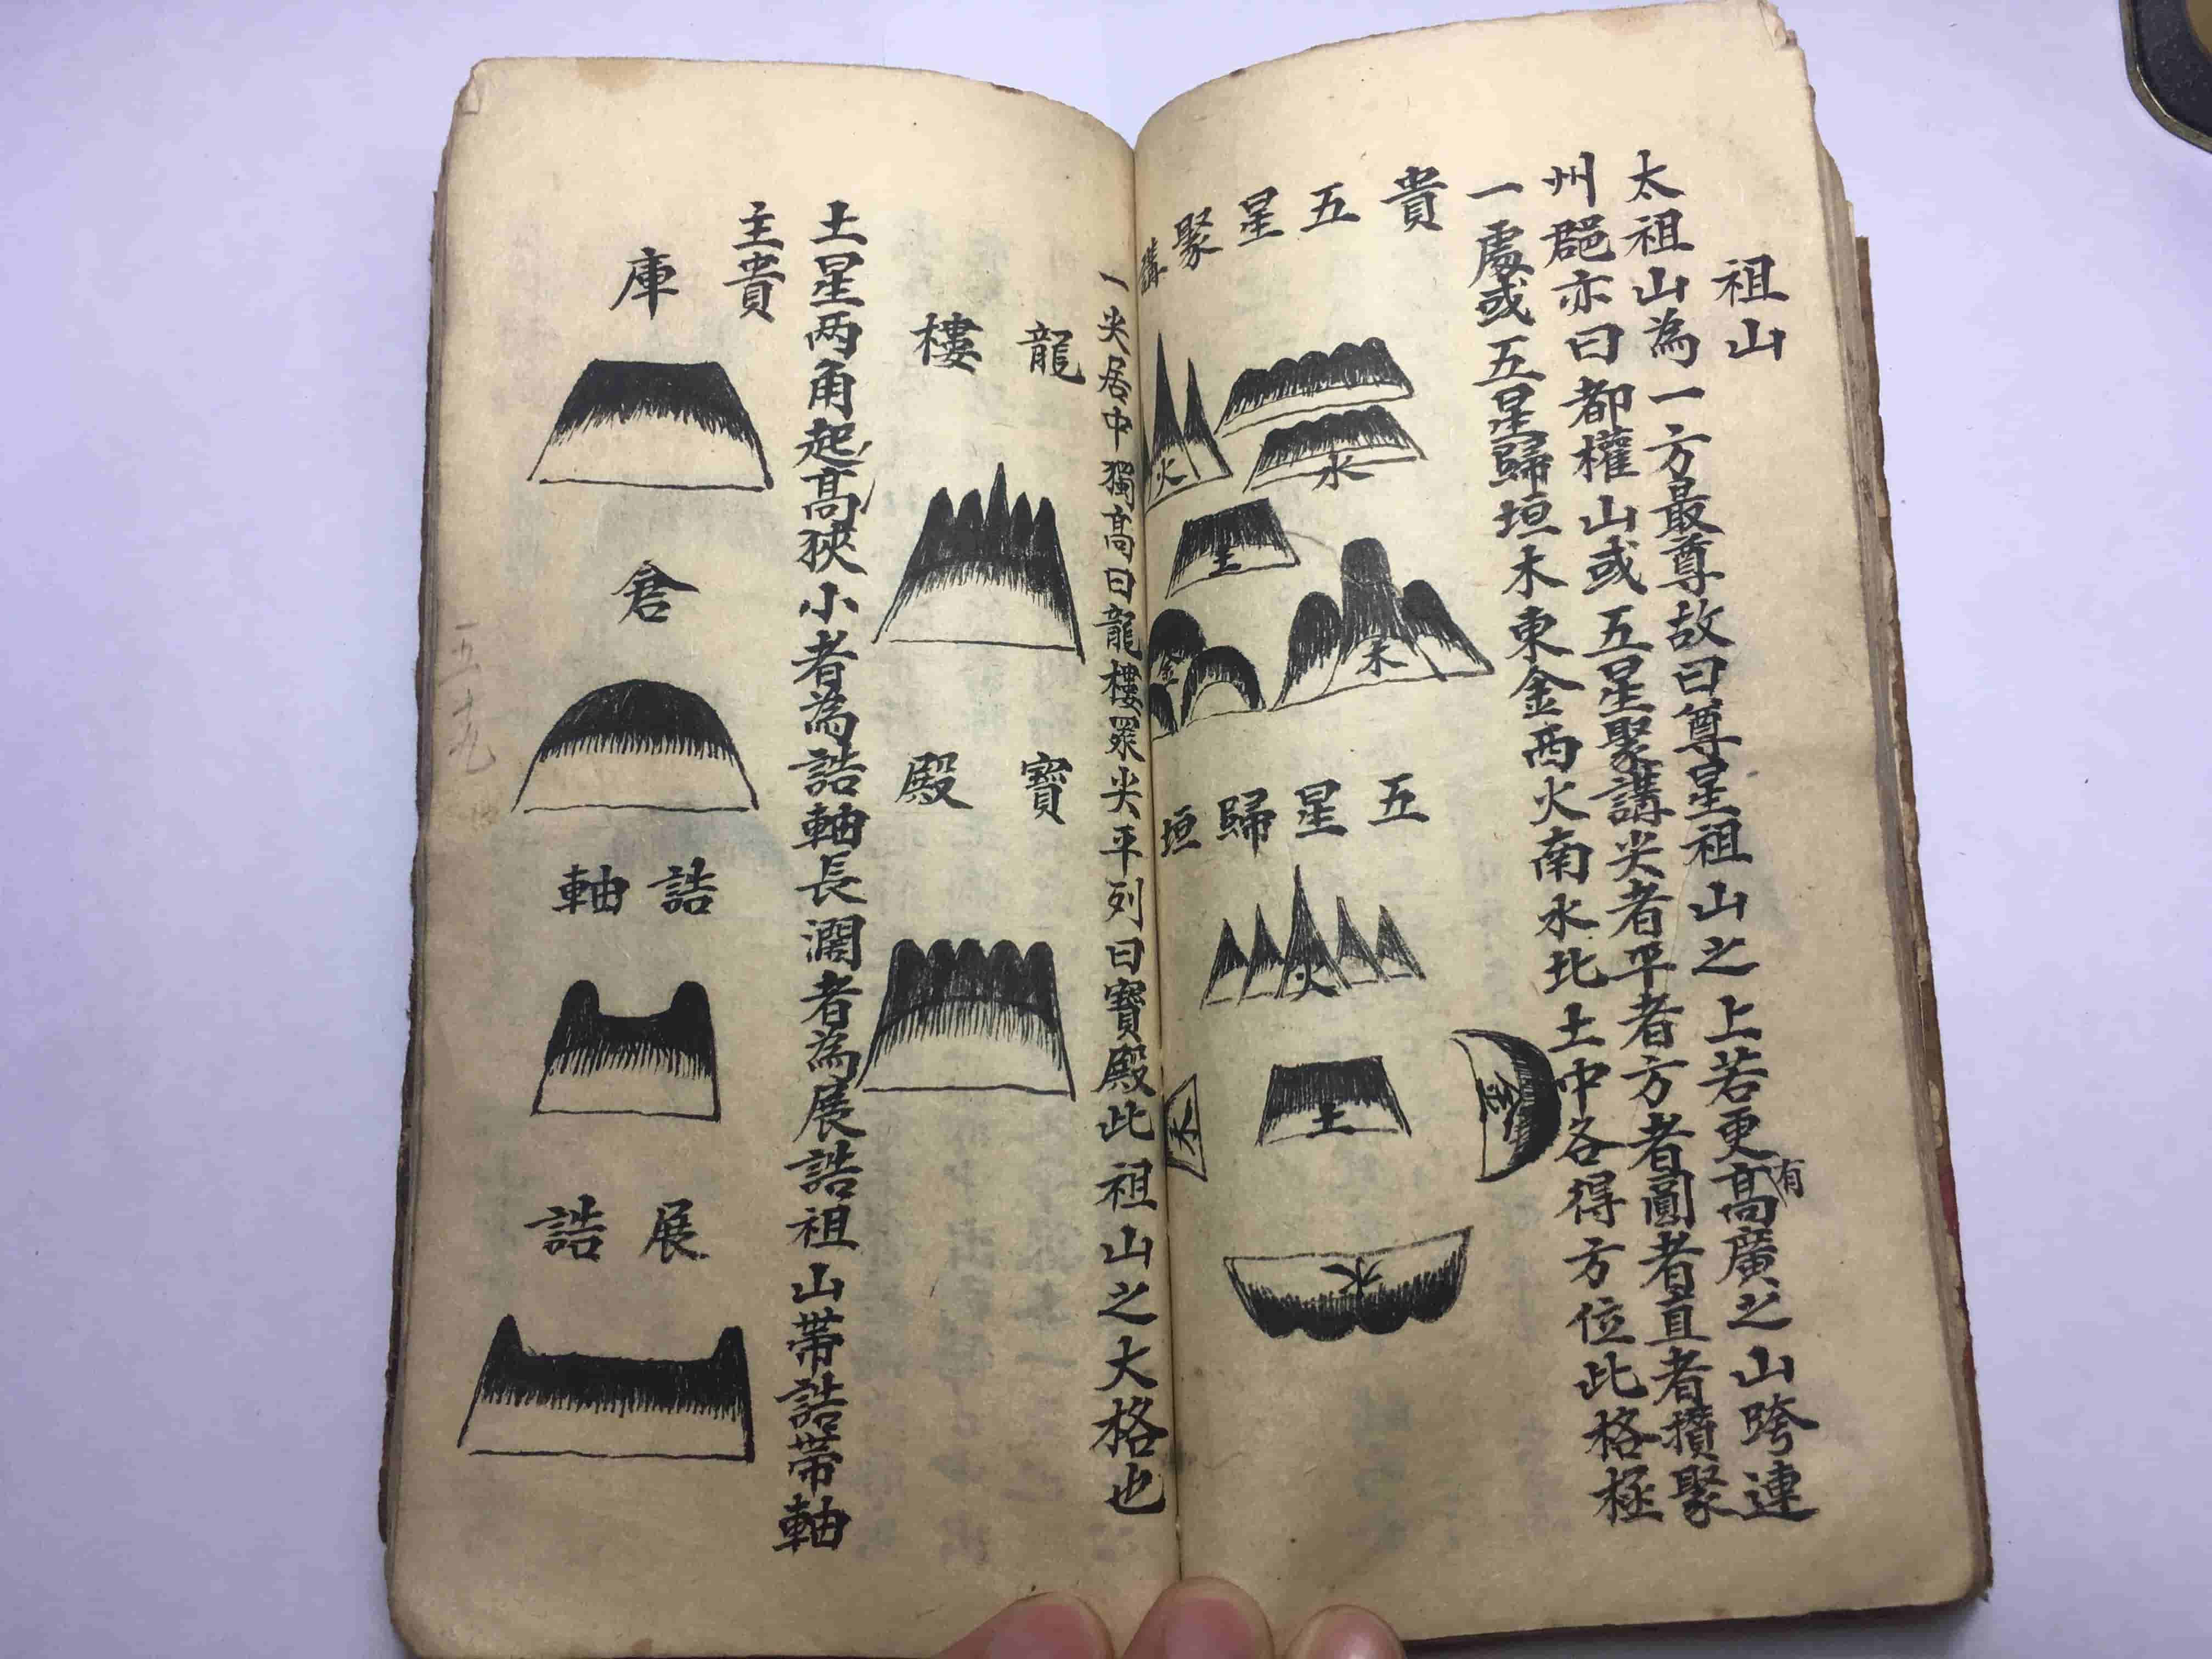 祖山
太祖山為一方最尊故曰尊星祖山之上若更有高廣之山跨連
州郡亦曰都權山或五星聚講尖者平者方者圓者直者攢聚
一處或五星歸垣木東金西火南水北土中各得方位此格極
貴
五星聚講
火
水
土
金
木
五星歸垣
火
金
土
木
水
一尖居中獨高曰龍樓眾尖平列曰寶殿此祖山之大格也
龍樓
寶殿
土星两角起高狹小者為誥軸長濶者為展誥祖山帶誥帶軸
主貴
庫
倉
誥軸
展誥